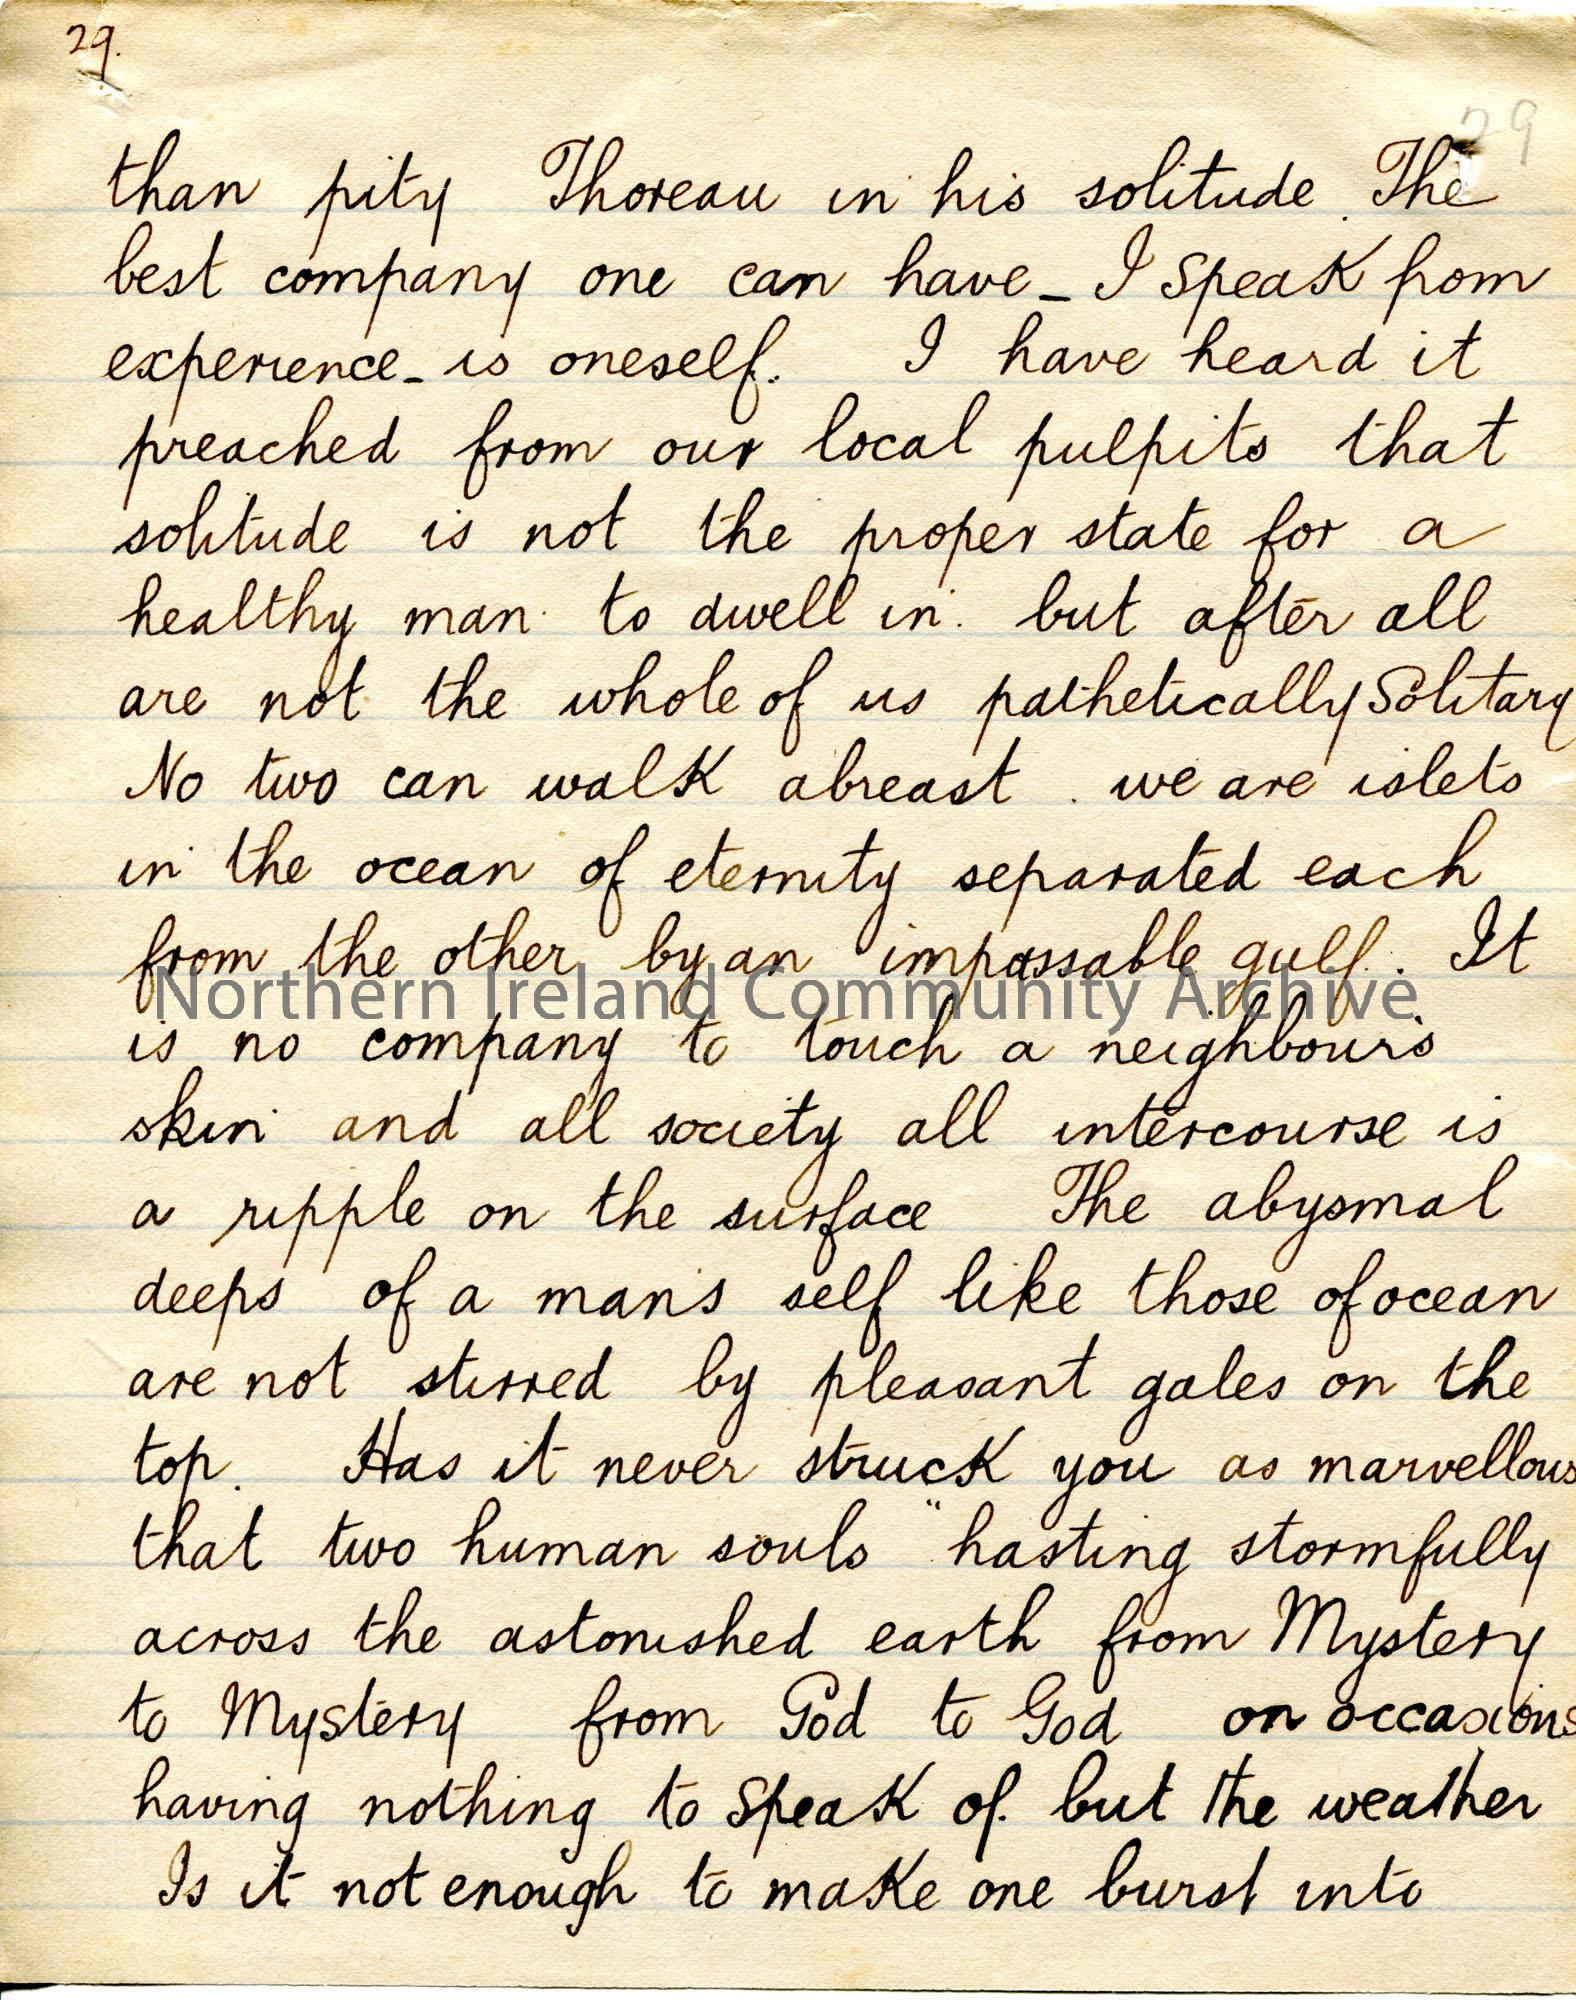 29.
29
than pity Thoreau in his solitude. The
best company one can have - I speak from
experience - is oneself. I have heard it
preached from our local pulpits that
solitude is not the proper state for a
healthy man to dwell in. but after all
are not the whole of us pathetically Solitary
No two can walk abreast. we are islets
in the ocean of eternity separated each
from the other by an impassable gulf. It
Northern Ireland Community Archive
is no company to touch a neighbour's
skin and all society all intercourse is
a ripple on the surface The abysmal
deeps of a man's self like those of ocean
are not stirred by pleasant gales on the
top. Has it never struck you as marvellous
that two human souls "hasting stormfully
across the astonished earth from Mystery
to Mystery from God to God on occasions
having nothing to speak of but the weather
Is it not enough to make one burst into